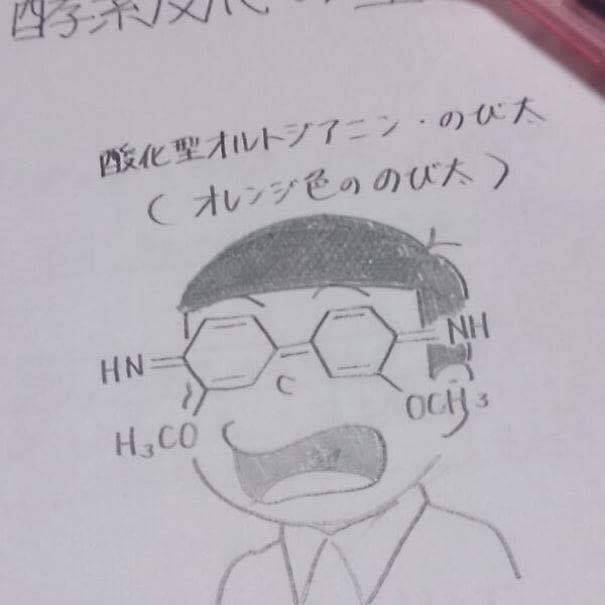 酵素反応の
酸化型オルトジアニン・のび太
(オレンジ色ののび太)
HN
NH
H₃CO
OCH₃